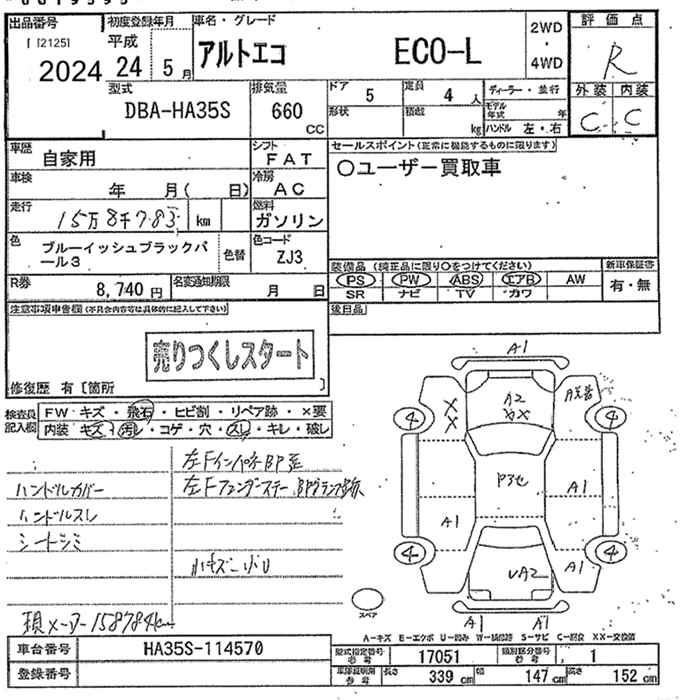 出品番号 初度登録年月 車名・グレード 評価点
[ [2125]
2024
平成
24 5 月
アルトエコ ECO-L
2WD
・
4WD
R
型式
DBA-HA35S
排気量
660
CC
ドア 5
定員 4 人
ディーラー・並行
形状
積載 kg
モデル年式 年
ハンドル 左・右
外装 内装
C C
車歴 自家用
シフト FAT
セールスポイント(正常に機能するものに限ります)
○ユーザー買取車
車検 年 月( 日)
冷房 AC
走行 15万8千783 km
燃料 ガソリン
色 ブルーイッシュブラックパ
ール3
色替
色コード ZJ3
装備品 (純正品に限り○をつけてください) 新車保証書
PS PW ABS エアB AW
SR ナビ TV カワ
有・無
R券 8,740 円
名変通知期限 月 日
後日品
注意事項申告欄(不具合内容等は具体的に記入して下さい)
売りつくしスタート
修復歴 有 [箇所 ]
検査員
記入欄
FW キズ・飛石・ヒビ割・リペア跡・×要
内装 キズ・汚レ・コゲ・穴・スレ・キレ・破レ
ハンドルカバー
ハンドルスレ
シートシミ
小キズ 小U
現メーター158784km
A1
A2
XX
XX
4 4
A1
A1
4 4
A1
UA2
A1 A1
スペア
A-キズ E-エクボ U-凹み W-補修跡 S-サビ C-腐食 XX-交換済
車台番号 HA35S-114570
型式指定番号
参考 17051
類別区分番号
参考 1
登録番号
車検証期限
参考
長さ 339 cm 幅 147 cm 高さ 152 cm